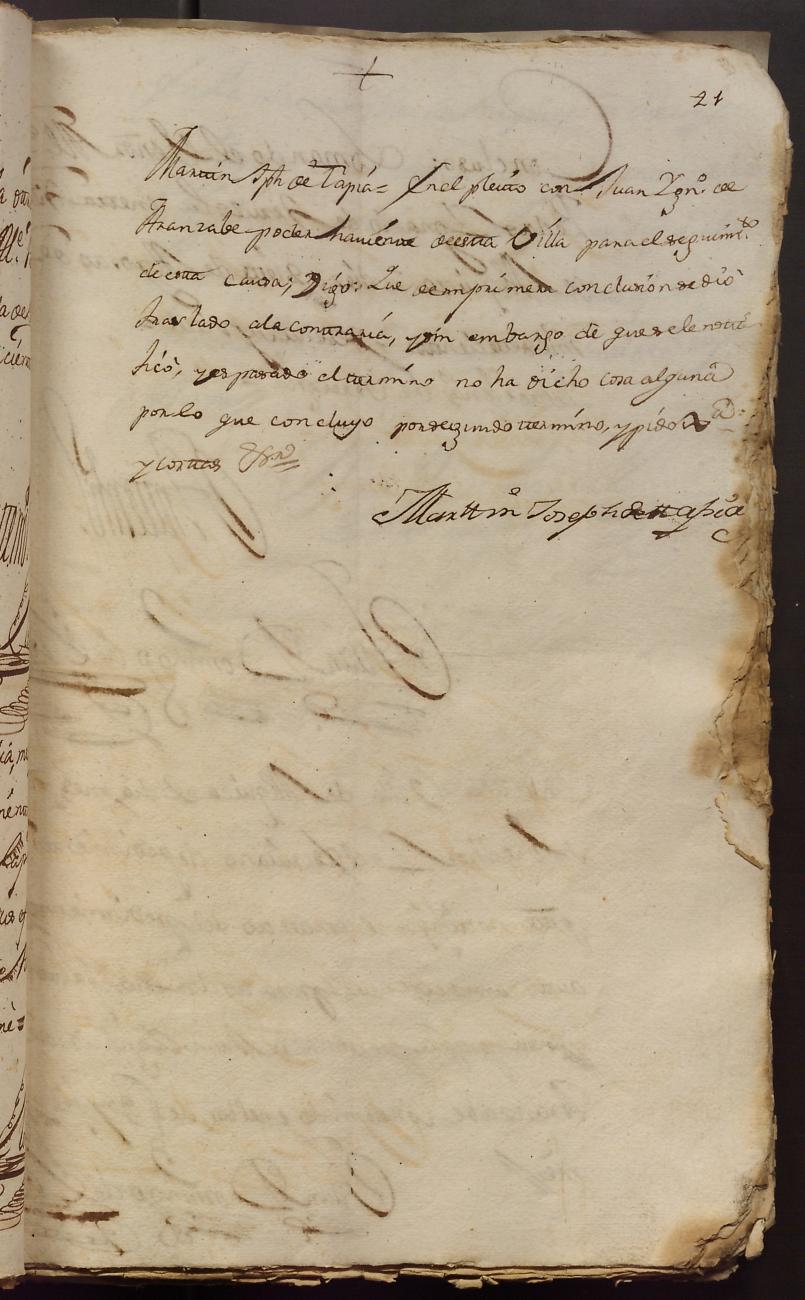 +
21
Martin Jph de Tapia = En el pleito con Juan Ygnº de
Aranzabe poder haviente de esta Villa para el seguimtº
de esta causa; Digo: Que de mi primera conclusion se dió
traslado a la contraria, y sin embargo de que se le noti
ficò, y es pasado el termino no ha dicho cosa alguna
por lo que concluyo por segundo termino, y pido
y costas
Marttin Joseph de ttapia